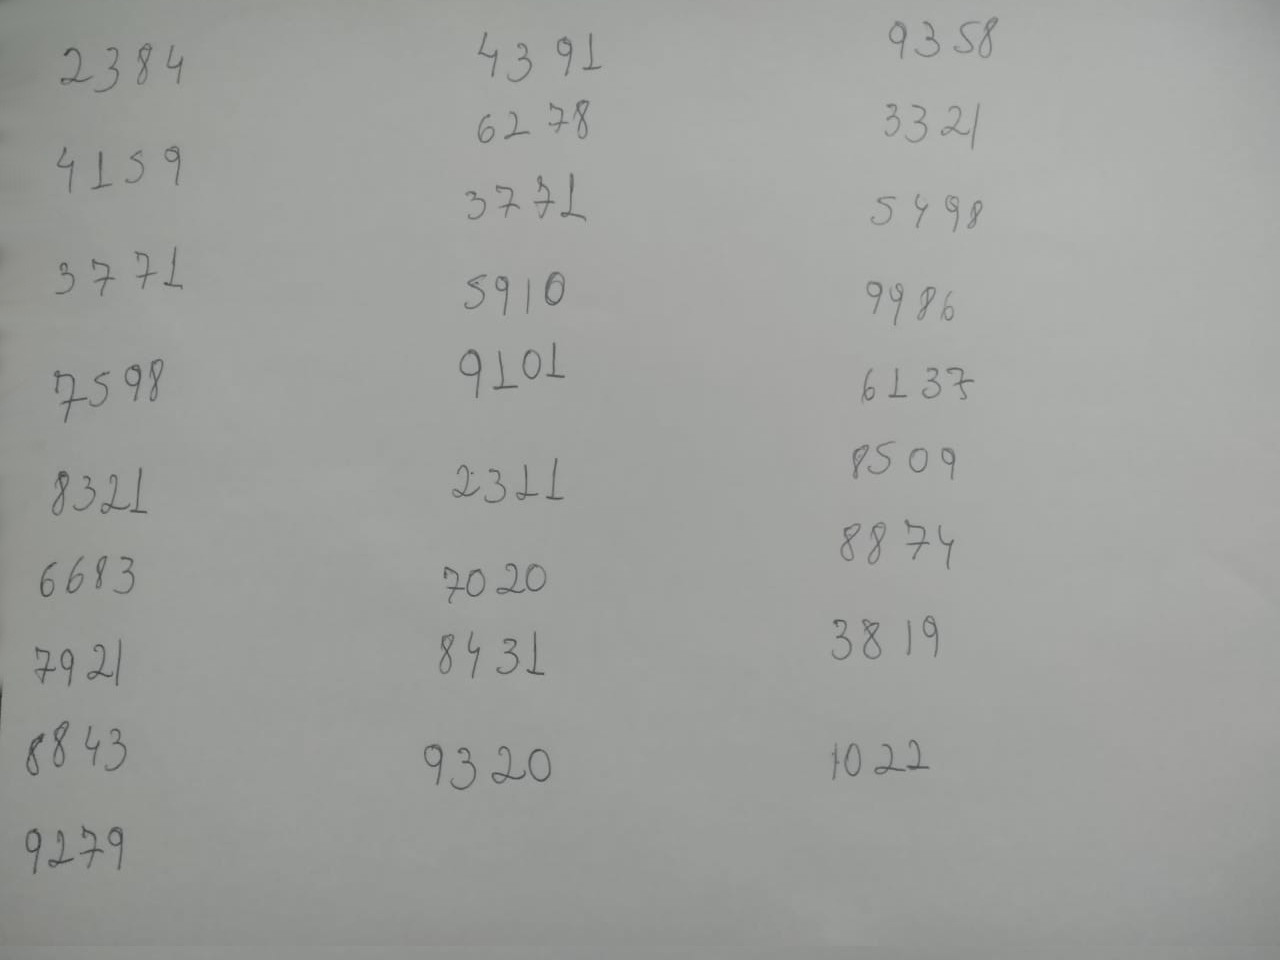 2384
4159
3771
7598
8321
6683
7921
8843
9279
4391
6278
3771
5910
9101
2311
7020
8431
9320
9358
3321
5498
9986
6137
8509
8874
3819
1022